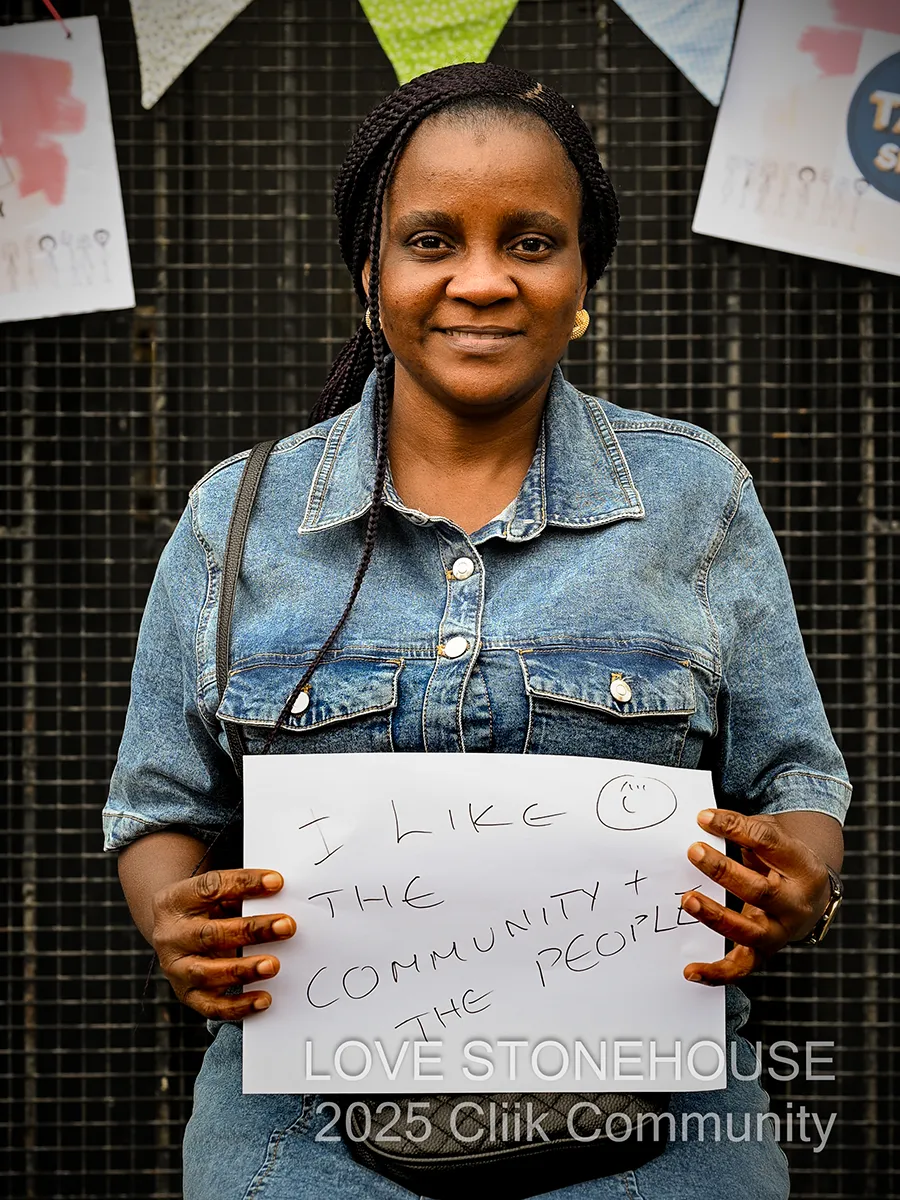 I LIKE
THE
COMMUNITY +
THE PEOPLE
LOVE STONEHOUSE
2025 Cliik Community